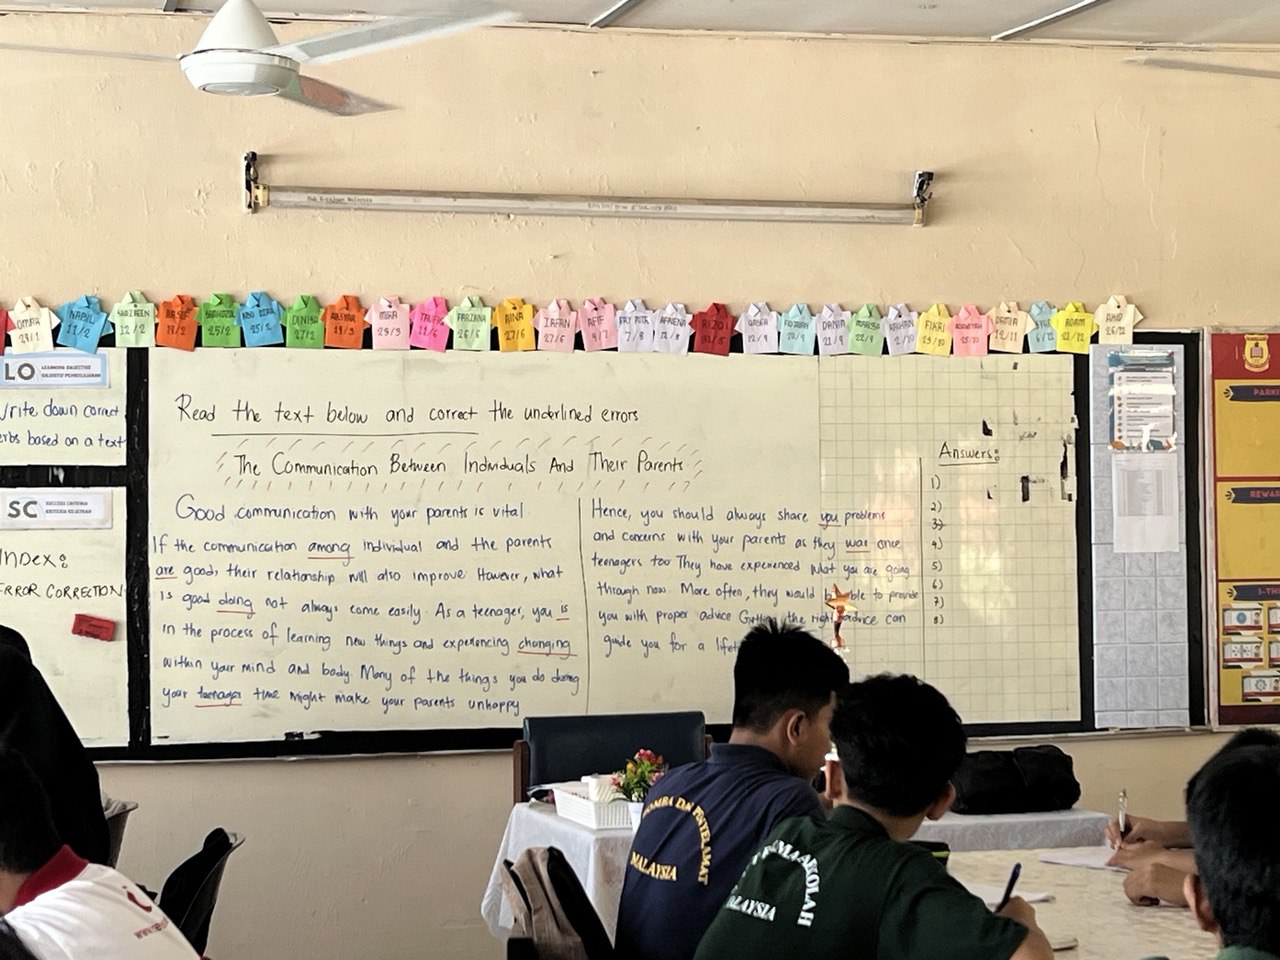 NABIL
11/2
SHAZREEN
12/2
18/2
25/2
25/2
DINISH
27/2
19/3
MIRA
23/3
11/6
FARZANA
26/6
AINA
27/6
IRFAN
27/6
AFIF
4/7
7/8
12/8
RIZQI
20/9
DANIA
21/9
22/9
2/10
FIKRI
29/10
15/10
DAMIA
12/11
ADAM
26/12
LO
LEARNING OBJECTIVE
OBJEKTIF PEMBELAJARAN
Write down correct
verbs based on a text
SC
SUCCESS CRITERIA
KRITERIA KEJAYAAN
Index:
ERROR CORRECTION
Read the text below and correct the underlined errors
The Communication Between Individuals And Their Parents
Good communication with your parents is vital.
If the communication among individual and the parents
are good, their relationship will also improve. However, what
is good doing not always come easily. As a teenager, you is
in the process of learning new things and experiencing changing
within your mind and body. Many of the things you do during
your teenager time might make your parents unhappy
Hence, you should always share you problems
and concerns with your parents as they was once
teenagers too. They have experienced what you are going
through now. More often, they would be able to provide
you with proper advice. Getting the right advice can
guide you for a
Answers:
1)
2)
3)
4)
5)
6)
7)
8)
BOMBA DAN PENYELAMAT
MALAYSIA
MALAYSIA